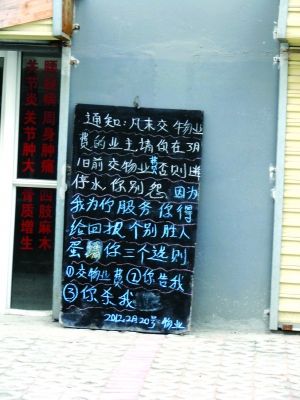 腰腿痛 周身肿痛 四肢麻木
关节炎 关节肿大 骨质增生
通知:凡未交物业
费的业主请你在3月
1日前交物业费否则
停水你别怨因为
我为你服务你得
给回报个别胜人
蛋 你三个选则
①交物业费②你告我
③你杀我
2012.2月20号 物业